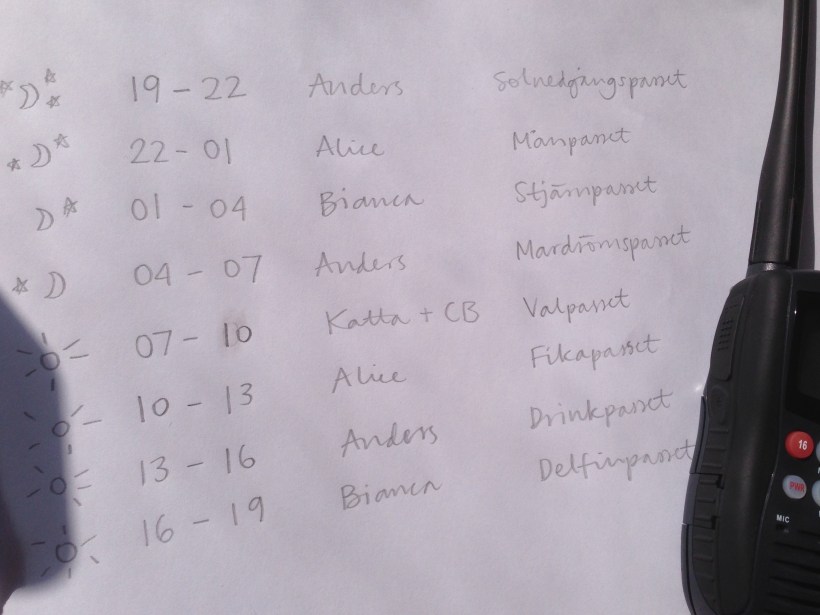 19 - 22 Anders Solnedgångspasset
22 - 01 Alice Månpasset
01 - 04 Bianca Stjärnpasset
04 - 07 Anders Mardrömspasset
07 - 10 Katta + CB Valpasset
10 - 13 Alice Fikapasset
13 - 16 Anders Drinkpasset
16 - 19 Bianca Delfinpasset
16
PWR
MIC